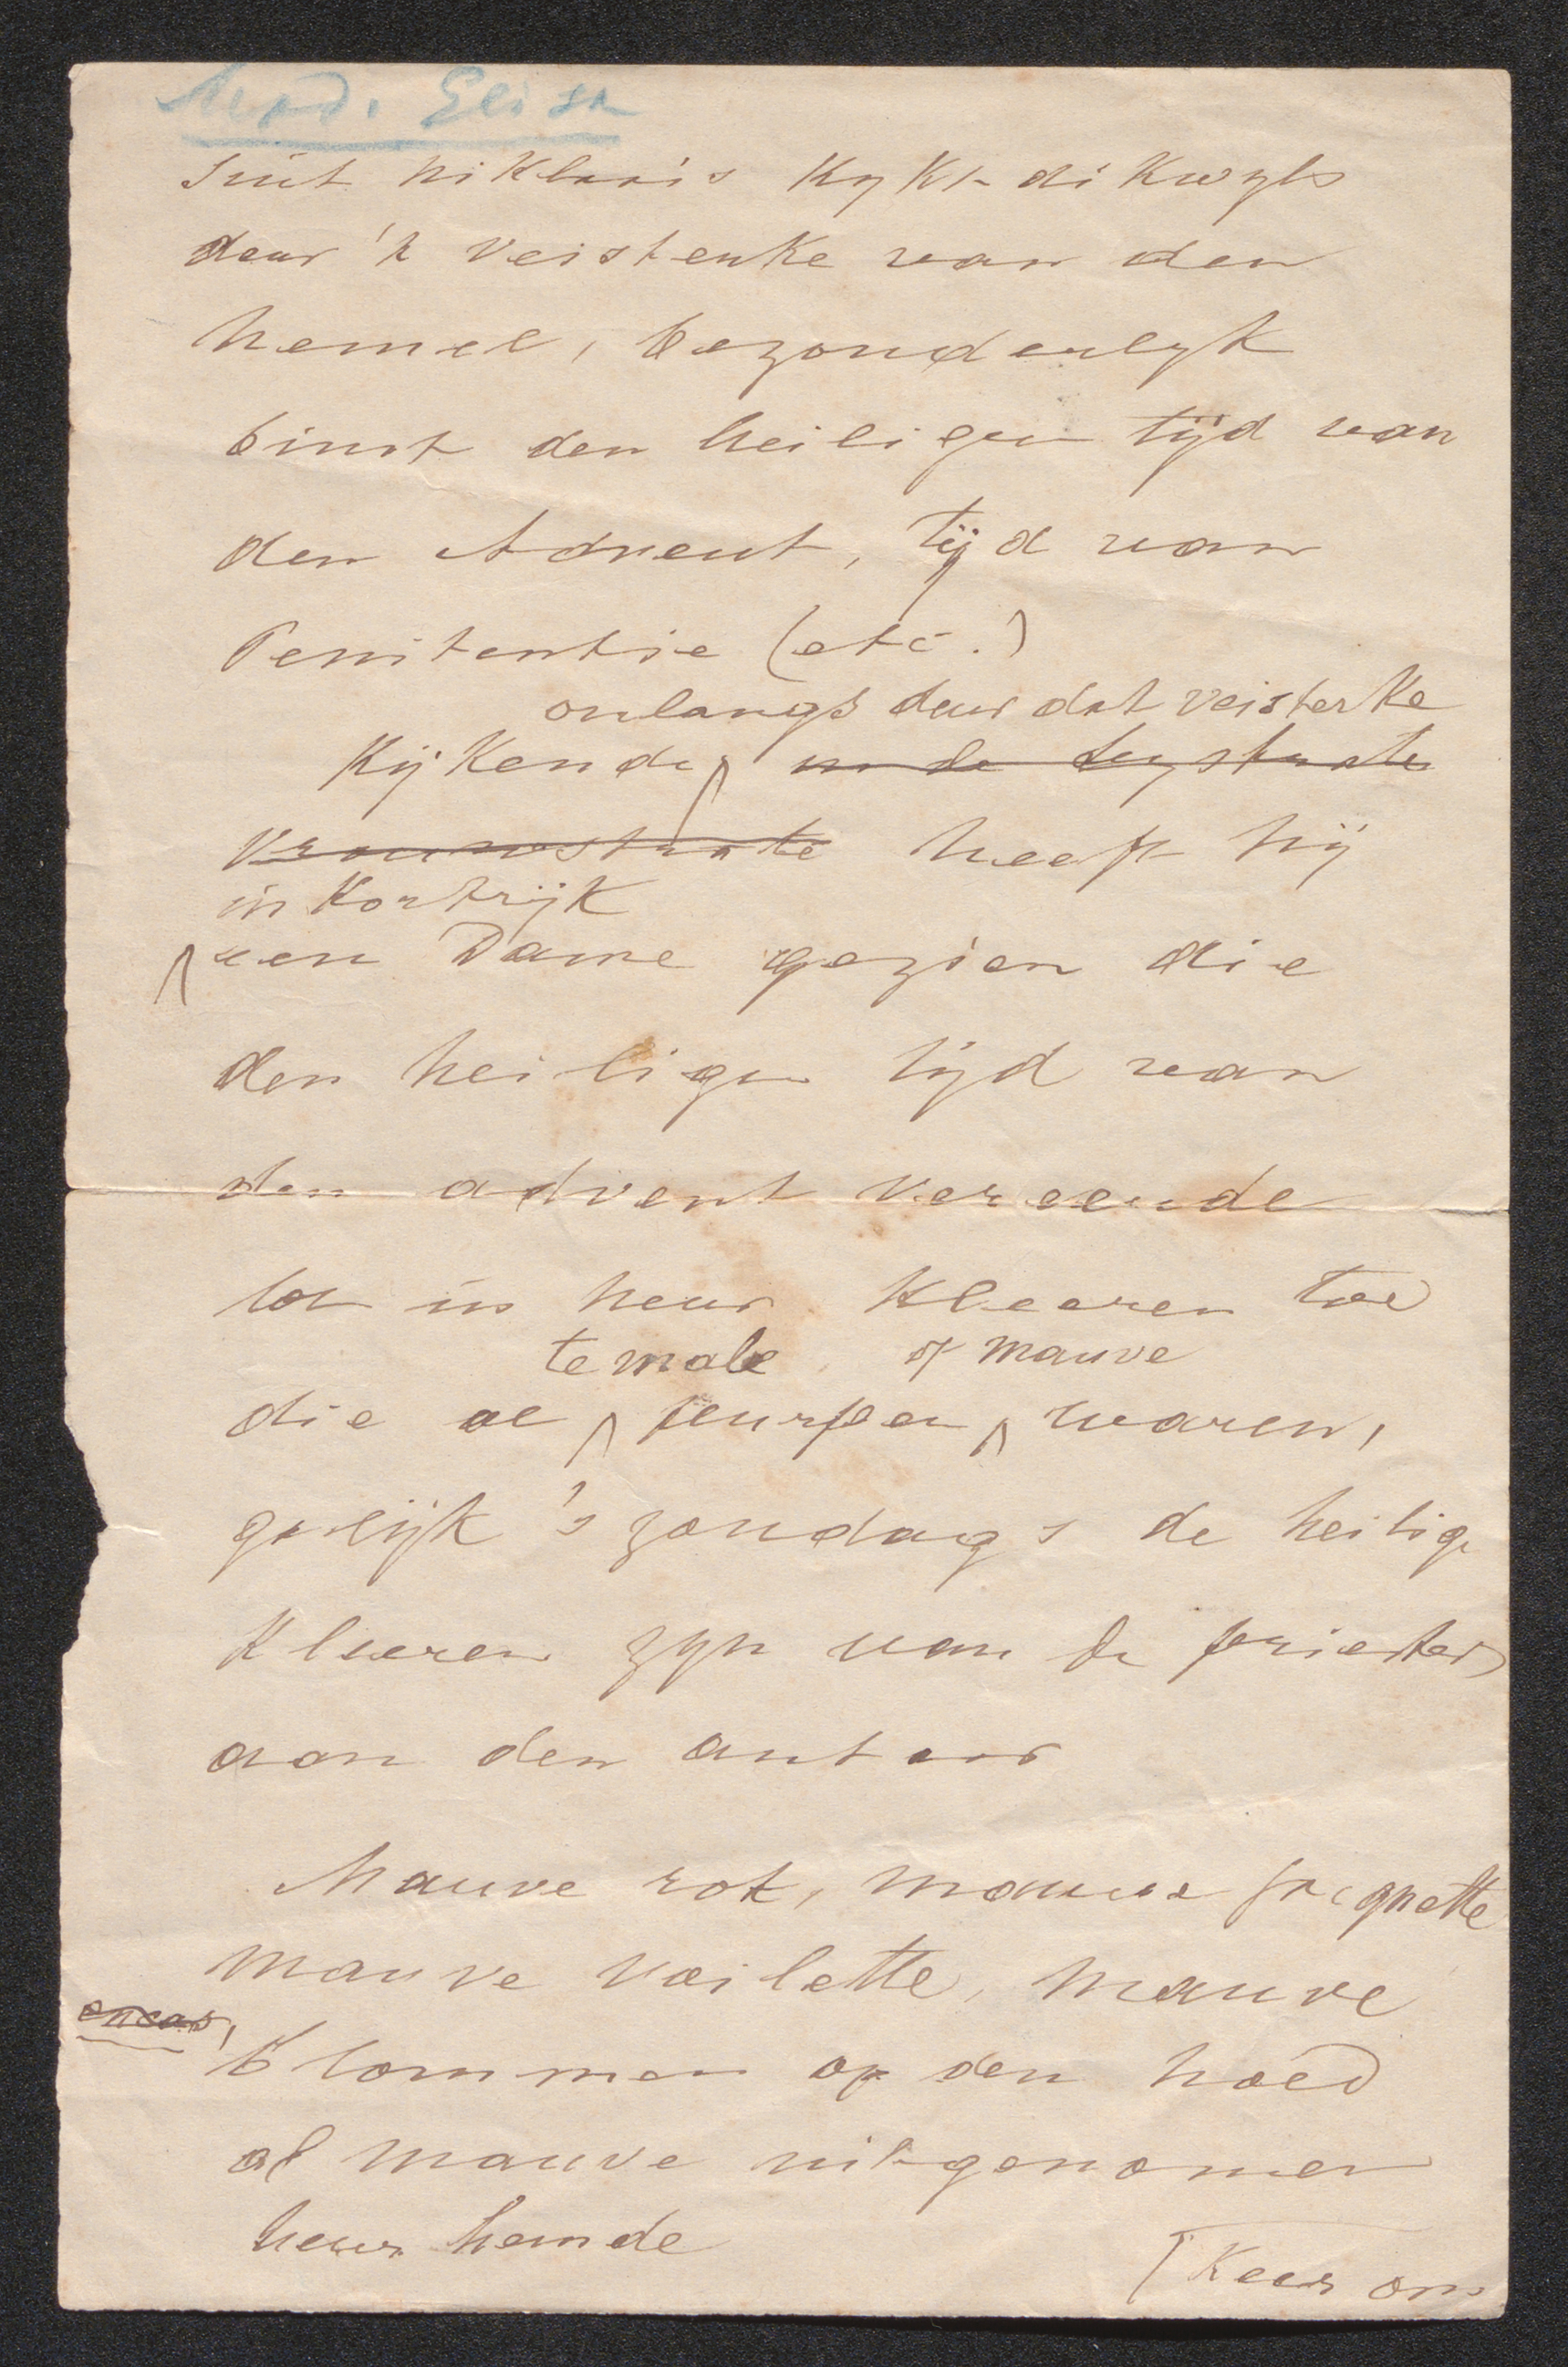 Mad. Elisa
Sint Niklaais kykt dikwyls
deur 't veistenke van den
hemel, bezonderlyk
binst den heiligen tijd van
den Advent, tijd van
Penitentie (etc.)
onlangs deur dat veisterke
Kijkende, in de Leystrate
Vrouwstrate heeft hij
in Kortrijk
een Dame gezien die
den heiligen tijd van
den advent vereende
tot in heur kleeren toe
temale of mauve
die al purper waren,
gelijk 's zondags de heilige
Kleeren zyn van de priester
aan den autaar
Mauve rok, mauve jaquette
mauve voilette, mauve
encas,
blommen op den hoed
al mauve uitgenomen
heur hemde
Keer om